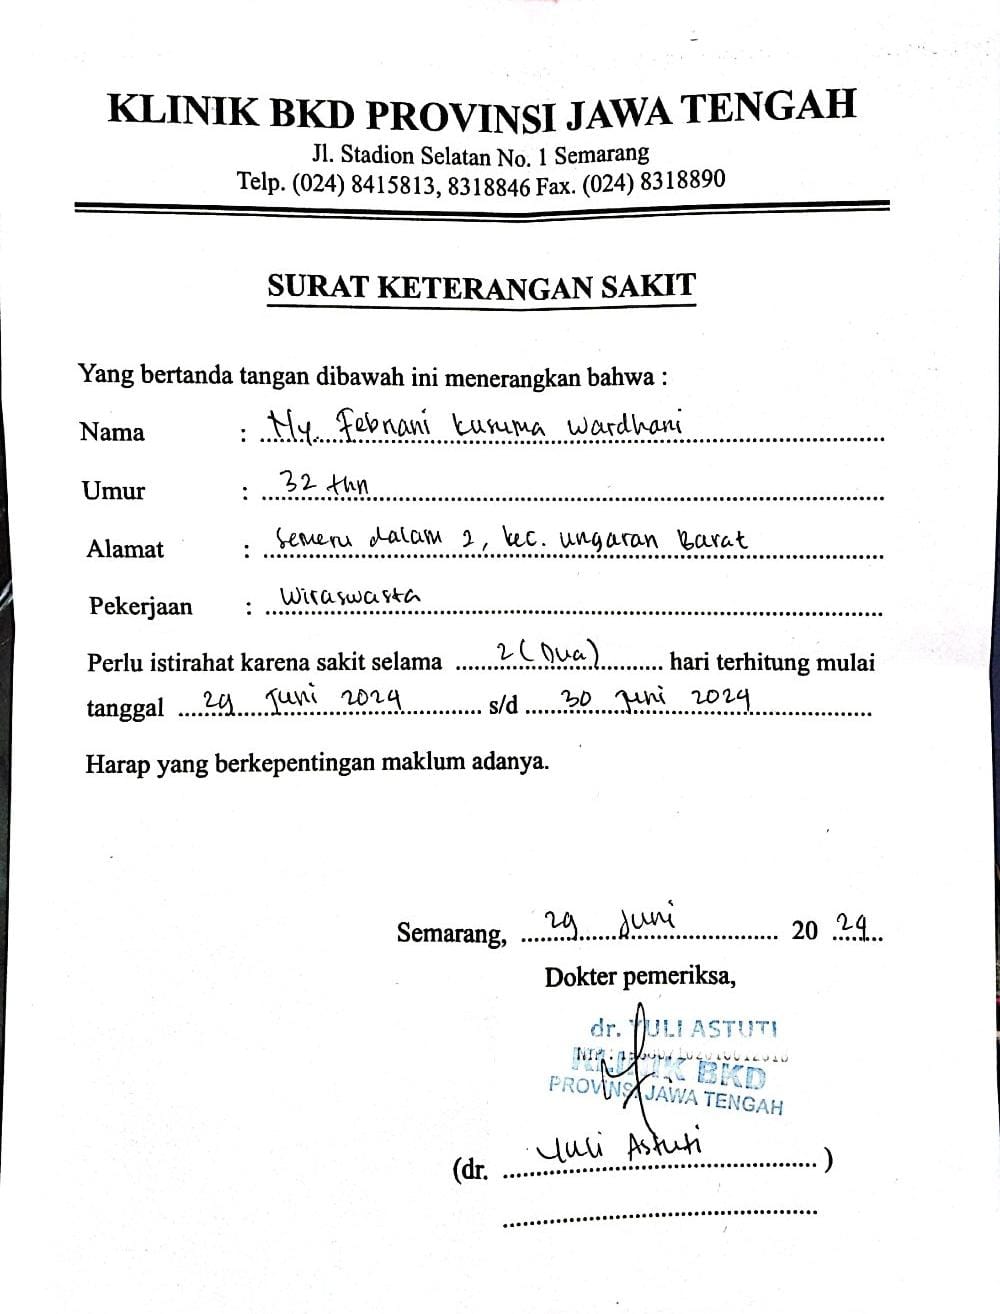 KLINIK BKD PROVINSI JAWA TENGAH
Jl. Stadion Selatan No. 1 Semarang
Telp. (024) 8415813, 8318846 Fax. (024) 8318890
SURAT KETERANGAN SAKIT
Yang bertanda tangan dibawah ini menerangkan bahwa :
Nama : Ny. Febriani Kusuma Wardhani
Umur : 32 thn
Alamat : Semeru dalam 2, kec. Ungaran Barat
Pekerjaan : Wiraswasta
Perlu istirahat karena sakit selama 2 (Dua) hari terhitung mulai
tanggal 29 Juni 2024 s/d 30 Juni 2024
Harap yang berkepentingan maklum adanya.
Semarang, 29 Juni 20 24
Dokter pemeriksa,
dr. YULI ASTUTI
KLINIK BKD
PROVINSI JAWA TENGAH
(dr. Yuli Astuti )